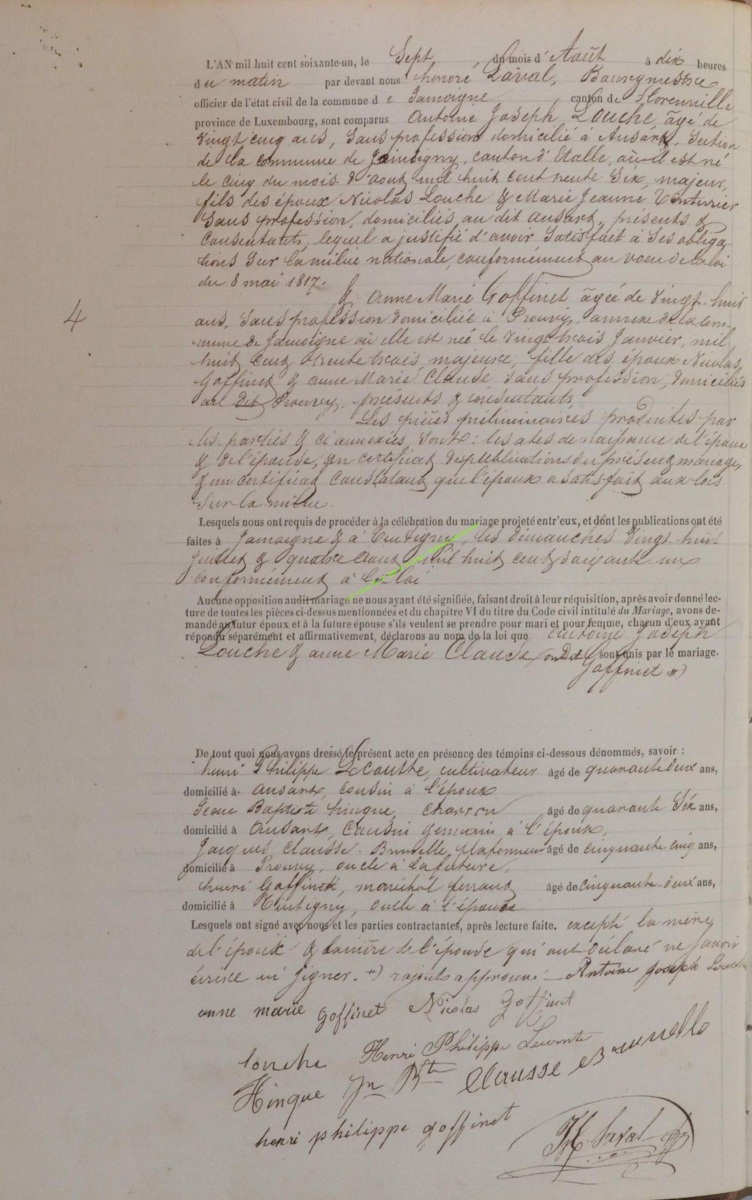 L'AN mil huit cent soixante-un, le Sept, du mois d'Août à dix heures
du matin par devant nous honoré Laval, Bourgmestre
officier de l'état civil de la commune de Jamoigne canton de Florenville
province de Luxembourg, sont comparus Antoine Joseph Louche âgé de
vingt cinq ans, sans profession domicilié à Ansart, Section
de la commune de canton d'Etalle, où il est né
le cinq du mois d'aout mil huit cent trente Six, majeur,
fils des époux Nicolas Louche & Marie Jeanne
sans profession, domiciliés, au dit ansart, présents &
consentants, lequel a justifié d'avoir satisfait à ses obliga
tions sur la milice nationale, conformément au voeu de la loi
du 8 mai 1817.
& Anne Marie Goffinet âgée de vingt-huit
ans, sans profession domiciliée à Prouvy, annexe de la com
mune de Jamoigne où elle est née le vingt trois Janvier, mil
4
huit cent trente trois, majeure, fille des époux Nicolas,
Goffinet & anne Marie Claude, sans profession, domiciliés
au dit Prouvy, présents & consentants
Les pièces préliminaires produites par
les parties & ci annexées, sont: les actes de naissance de l'époux
& de l'épouse, un certificat des publications du présent mariage
& un certificat constatant que l'époux a satisfait aux lois
sur la milice
Lesquels nous ont requis de procéder à la célébration du mariage projeté entr'eux, et dont les publications ont été
faites à Jamoigne & à Tintigny, les dimanches vingt huit
Juillet & quatre aout mil huit cent soixante un
conformément à la loi
Aucune opposition audit mariage ne nous ayant été signifiée, faisant droit à leur réquisition, après avoir donné lec-
ture de toutes les pièces ci-dessus mentionnées et du chapitre VI du titre du Code civil intitulé du Mariage, avons de-
mandé au futur époux et à la future épouse s'ils veulent se prendre pour mari et pour femme, chacun d'eux ayant
répondu séparément et affirmativement, déclarons au nom de la loi que Antoine Joseph
Louche & anne Marie Claude, sont unis par le mariage.
Goffinet *)
De tout quoi nous avons dressé le présent acte en présence des témoins ci-dessous dénommés, savoir :
henri Philippe Lecomte, cultivateur âgé de quarante deux ans,
domicilié à ansart, cousin à l'époux
Jean Baptiste hinque, charron âgé de quarante Six ans,
domicilié à ansart, cousin germain à l'époux,
Jacques Clausse Brunelle, plafonneur âgé de cinquante cinq ans,
domicilié à Prouvy, oncle à la future,
henri Goffinet, maréchal ferrant âgé de cinquante deux ans,
domicilié à Tintigny, oncle à l'épouse
Lesquels ont signé avec nous et les parties contractantes, après lecture faite. excepté la mère
de l'époux & la mère de l'épouse qui ont déclaré ne savoir
écrire ni signer. *) rajouté approuvé. Antoine joseph Louche
anne marie goffinet Nicolas goffinet
louche Henri Philippe Lecomte
Hinque Jn Bte Clausse Brunelle
henri philippe goffinet
H Laval